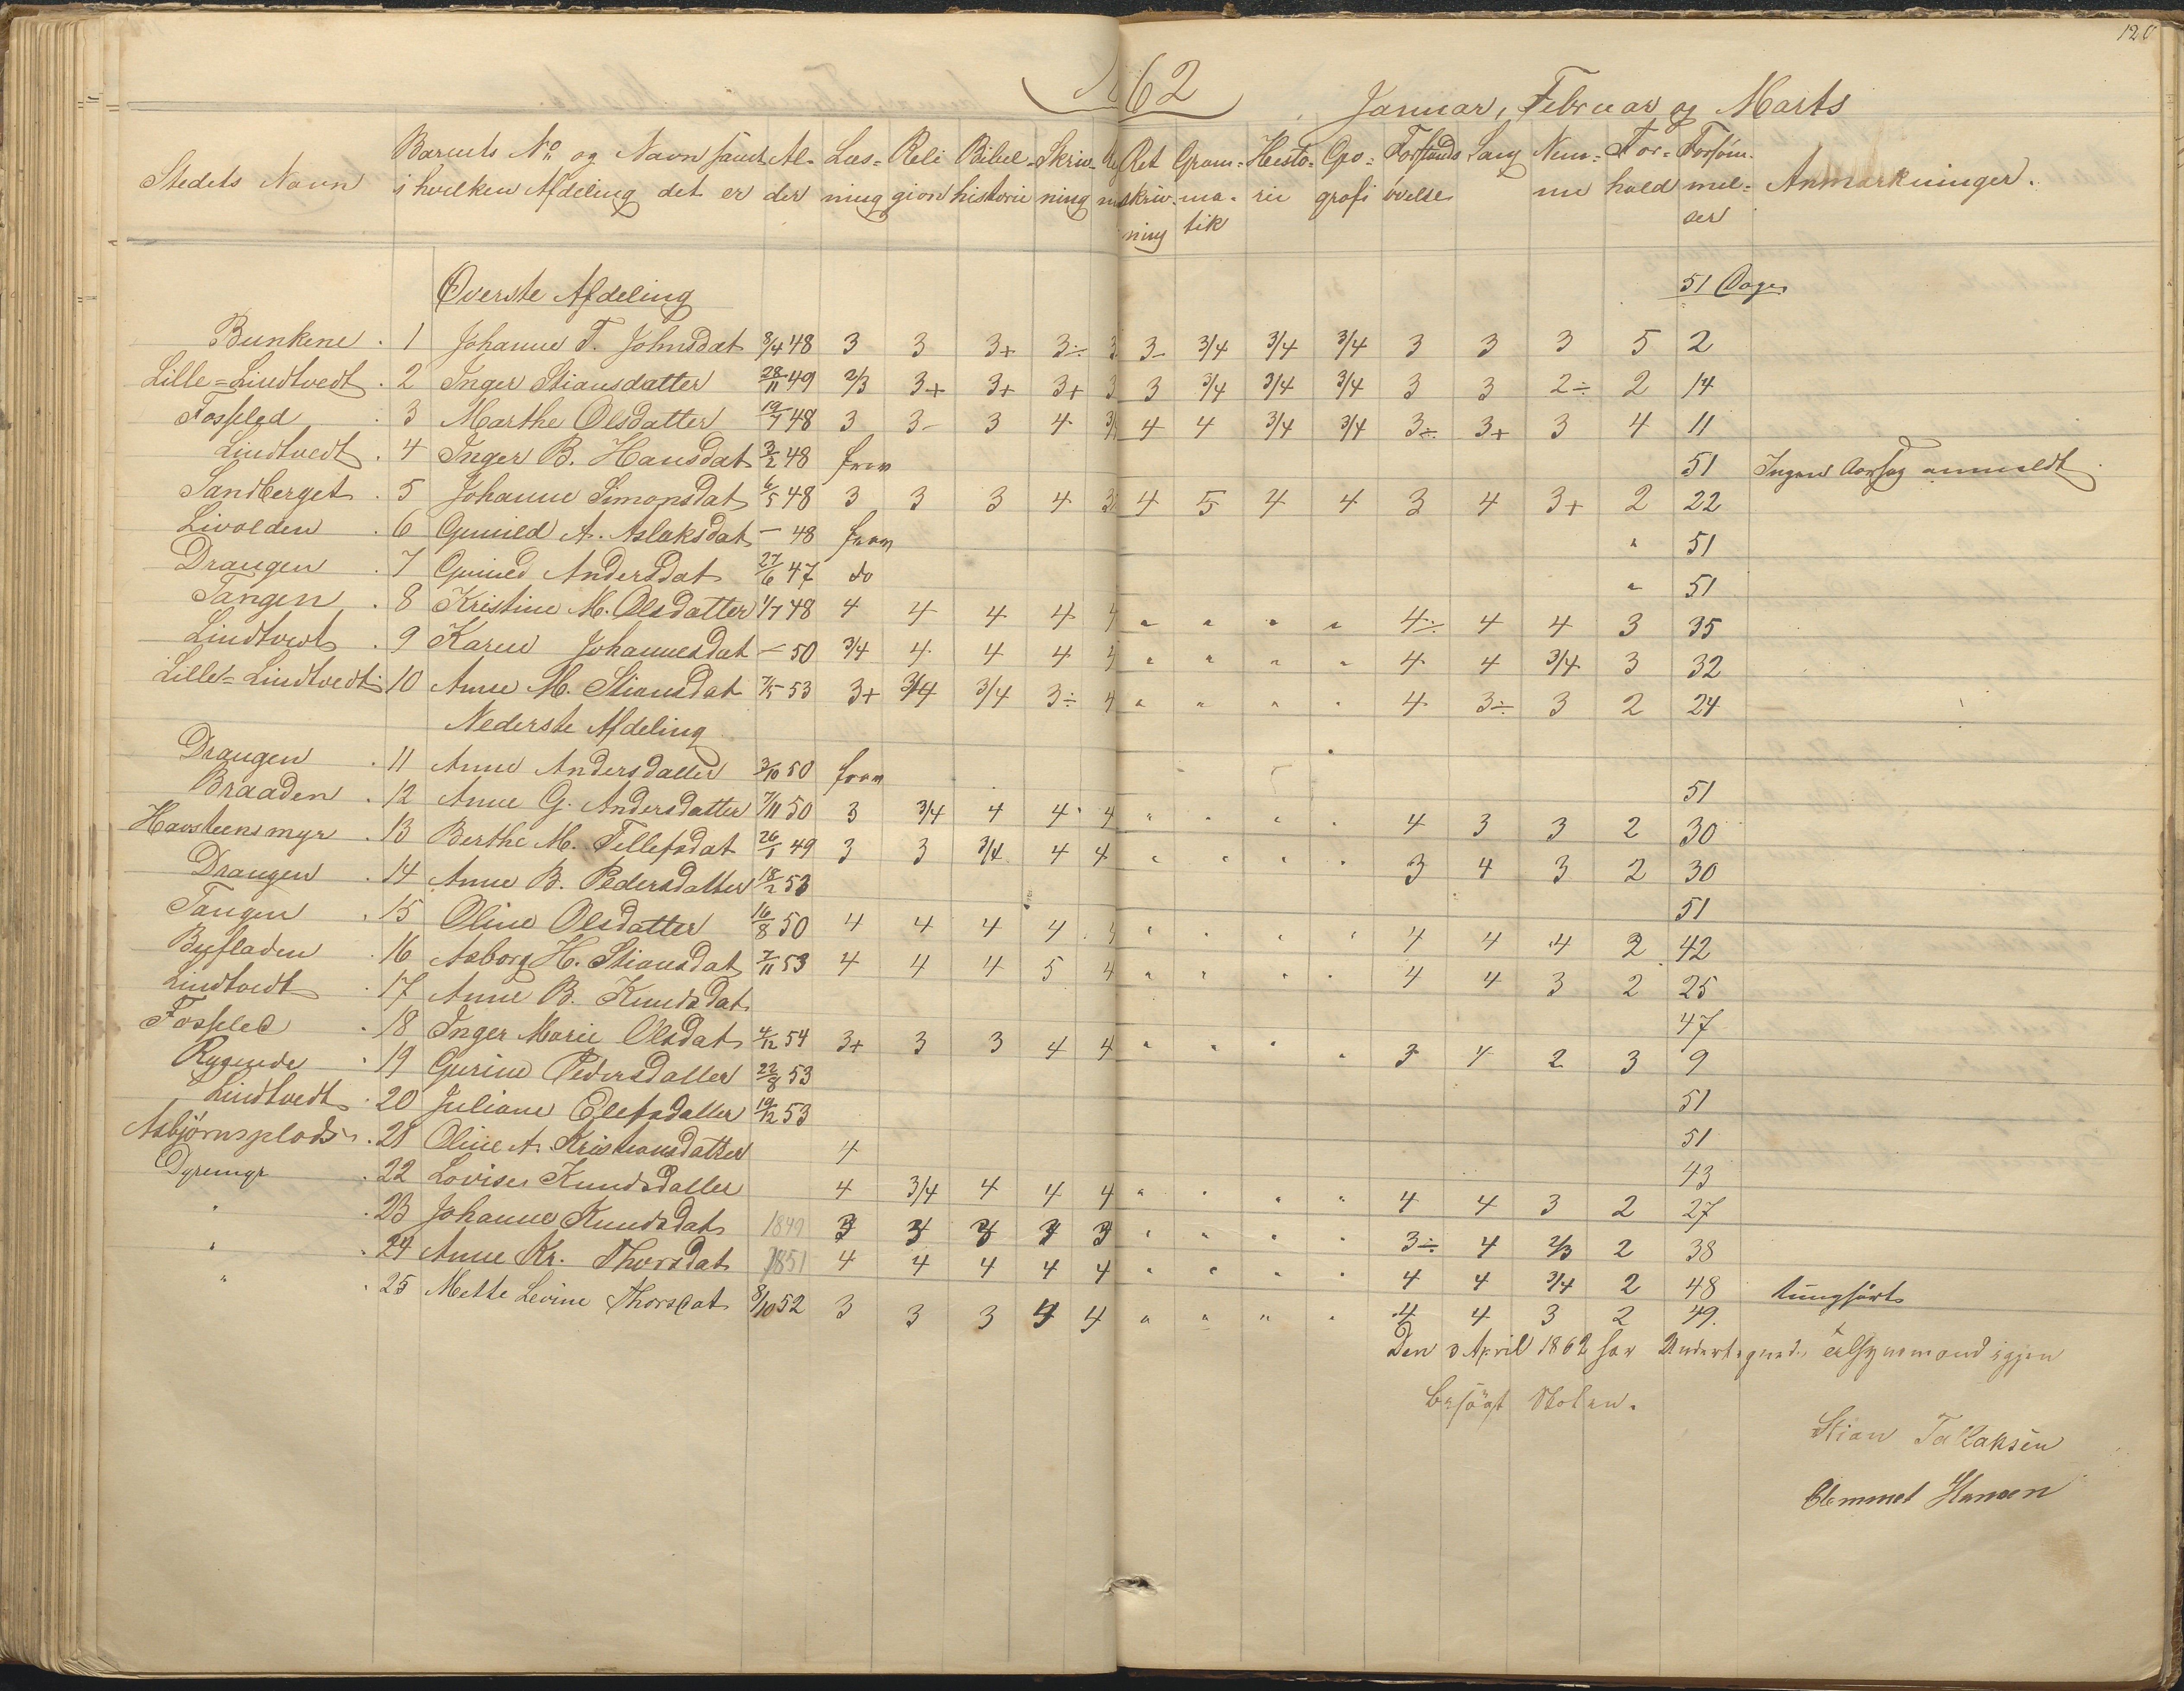 120
1862 Januar, Februar og Marts
Stedets Navn | Barnets No og Navn samt i hvilken Afdeling det er | Al- der | Læs= ning | Reli gion | Bibel= historie | Skriv- ning | Ret skriv- ning | Gram= ma- tik | Histo= rie | Geo= grafi | Forstands øvelse | Sang | Nem= me | For= hold | Forsøm- mel= ser | Anmærkninger.
Øverste Afdeling 51 Dage
Bunkene . 1 Johanne T. Johnsdat 8/4 48 3 3 3+ 3÷ 3 3- 3/4 3/4 3/4 3 3 3 5 2
Lille=Lindtvedt . 2 Inger Stiansdatter 28/11 49 2/3 3+ 3+ 3+ 3 3 3/4 3/4 3/4 3 3 2÷ 2 14
Fosseled . 3 Marthe Olsdatter 19/7 48 3 3- 3 4 3/4 4 4 3/4 3/4 3÷ 3+ 3 4 11
Lindtvedt . 4 Inger B. Hansdat 3/2 48 from 51 Ingen Aarsag anmeldt
Sandberget . 5 Johanne Simonsdat 6/5 48 3 3 3 4 3 4 5 4 4 3 4 3+ 2 22
Livolden . 6 Gunild A. Aslaksdat - 48 from " 51
Draugen . 7 Guned Andersdat 27/6 47 do " 51
Tangen . 8 Kristine M. Olsdatter 1/7 48 4 4 4 4 4 " " " " 4÷ 4 4 3 35
Lindtvedt . 9 Karen Johannesdat - 50 3/4 4 4 4 " " " " 4 4 3/4 3 32
Lille=Lindtvedt . 10 Anne M. Stiansdat 7/5 53 3+ 3/4 3/4 3÷ 4 " " " " 4 3÷ 3 2 24
Nederste Afdeling
Draugen . 11 Anne Andersdatter 3/10 50 from 51
Braaden . 12 Anne G. Andersdatter 7/11 50 3 3/4 4 4 4 " " " " 4 3 3 2 30
Havsteensmyr . 13 Berthe M. Tellefsdat 26/1 49 3 3 3/4 4 4 " " " " 3 4 3 2 30
Draugen . 14 Anne B. Pedersdatter 18/2 53 51
Tangen . 15 Oline Olsdatter 16/8 50 4 4 4 4 " " " " 4 4 4 2 42
Byfladen . 16 Asborg H. Stiansdat 7/11 53 4 4 4 5 4 " " " " 4 4 3 2 25
Lindtvedt . 17 Anne B. Knudsdat 47
Fosseled . 18 Inger Marie Olsdat 4/12 54 3+ 3 3 4 4 " " " " 3 4 2 3 9
Rygende . 19 Gurine Pedersdatter 22/8 53 51
Lindtvedt . 20 Juliane Elefsdatter 19/12 53 51
Asbjørnsplads . 21 Oline A. Kristiansdatter 4 43
Dyremyr . 22 Lovise Knudsdatter 4 3/4 4 4 4 " " " " 4 4 3 2 27
" . 23 Johanne Knudsdat 1849 3 3 3 3 3 " " " " 3÷ 4 2/3 2 38
" . 24 Anne Kr. Thorsdat 1851 4 4 4 4 4 " " " " 4 4 3/4 2 48 tunghørt
" . 25 Mette Levine Thorsdat 8/10 52 3 3 3 4 4 " " " " 4 4 3 2 49.
Den 3 April 1862 har Undertegnede Tilsynsmand igjen
besøgt Skolen.
Stian Jakaksen
Clemmet Hansen